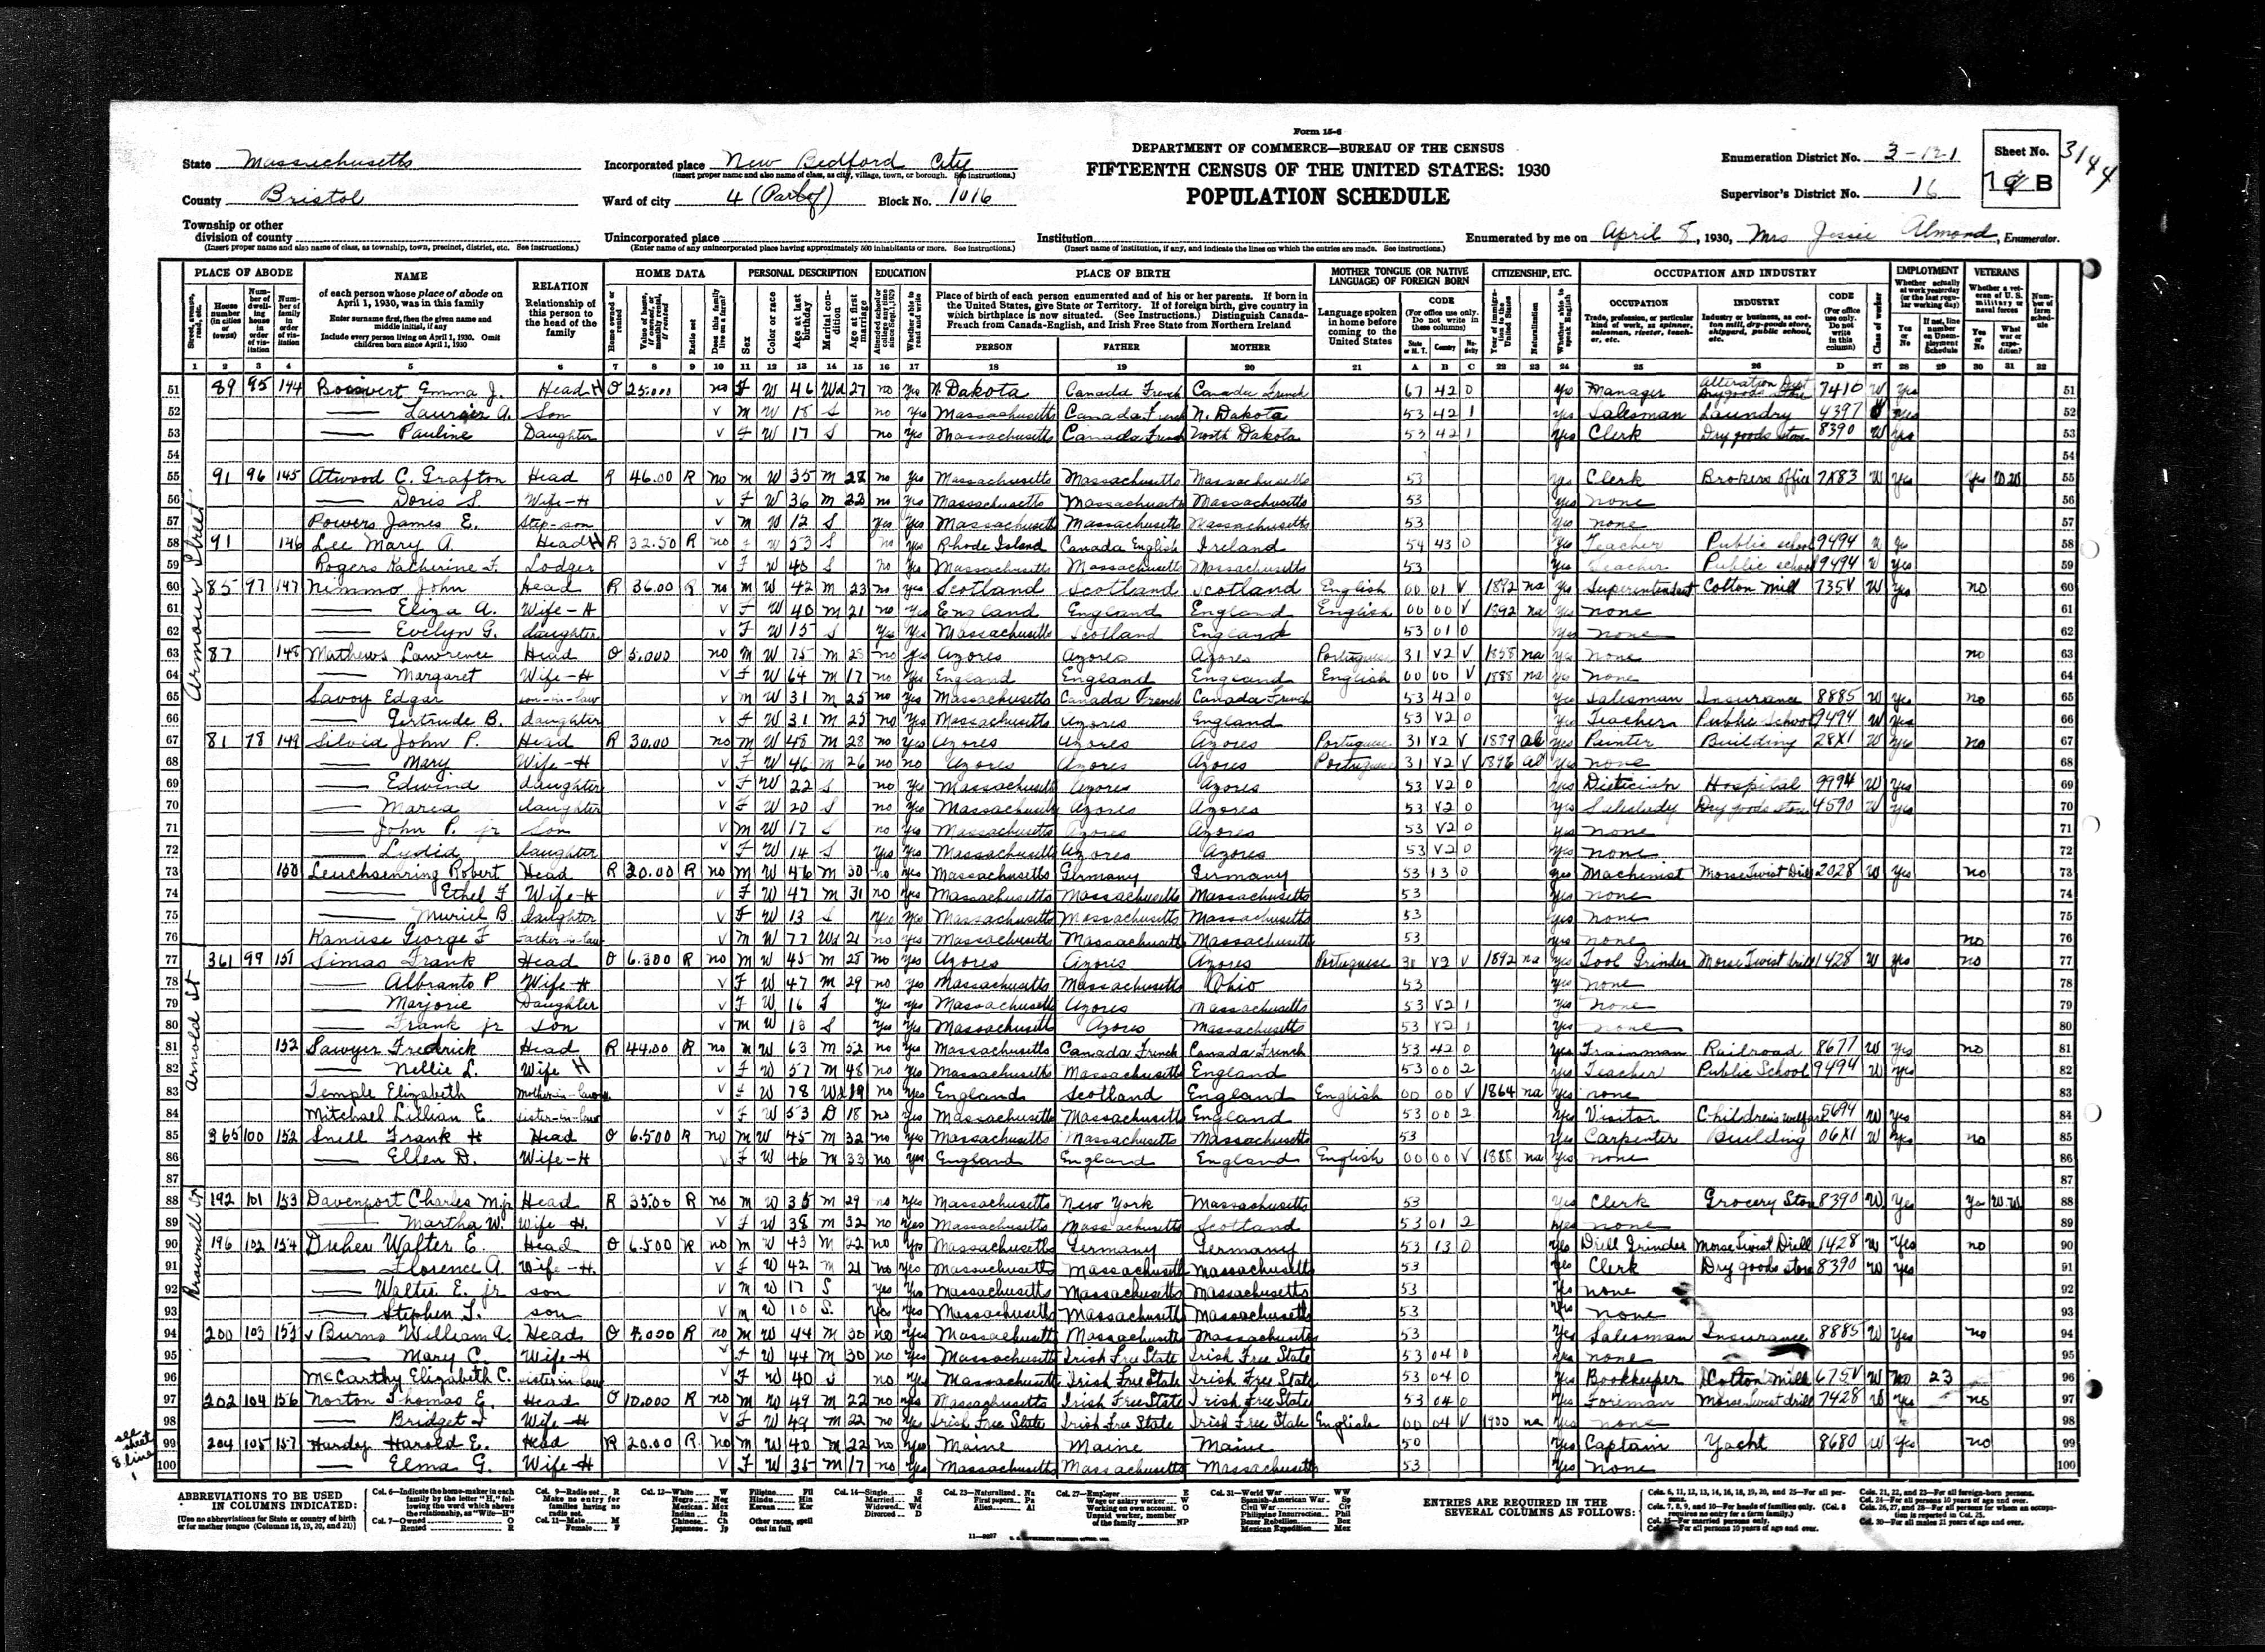 Form 15-6
DEPARTMENT OF COMMERCE—BUREAU OF THE CENSUS
FIFTEENTH CENSUS OF THE UNITED STATES: 1930
POPULATION SCHEDULE
State Massachusetts
County Bristol
Township or other division of county
(Insert proper name and also name of class, as township, town, precinct, district, etc. See instructions.)
Incorporated place New Bedford City
(Insert proper name and also name of class, as city, village, town, or borough. See instructions.)
Ward of city 4 (Part of) Block No. 1016
Unincorporated place
(Enter name of any unincorporated place having approximately 500 inhabitants or more. See instructions.)
Institution
(Insert name of institution, if any, and indicate the lines on which the entries are made. See instructions.)
Enumeration District No. 3-121
Supervisor's District No. 16
Sheet No. B
3144
Enumerated by me on April 8, 1930, Mrs Jessie Almond, Enumerator.
PLACE OF ABODE NAME RELATION HOME DATA PERSONAL DESCRIPTION EDUCATION PLACE OF BIRTH MOTHER TONGUE (OR NATIVE LANGUAGE) OF FOREIGN BORN CITIZENSHIP, ETC. OCCUPATION AND INDUSTRY EMPLOYMENT VETERANS
of each person whose place of abode on April 1, 1930, was in this family
Enter surname first, then the given name and middle initial, if any
Include every person living on April 1, 1930. Omit children born since April 1, 1930
Relationship of this person to the head of the family
Place of birth of each person enumerated and of his or her parents. If born in the United States, give State or Territory. If of foreign birth, give country in which birthplace is now situated. (See Instructions.) Distinguish Canada-French from Canada-English, and Irish Free State from Northern Ireland
PERSON FATHER MOTHER
Language spoken in home before coming to the United States
CODE (For office use only. Do not write in these columns)
OCCUPATION INDUSTRY CODE
1 2 3 4 5 6 7 8 9 10 11 12 13 14 15 16 17 18 19 20 21 A B C 22 23 24 25 26 D 27 28 29 30 31 32
Armour Street
51 89 95 144 Boisvert Emma J. Head H O 25.000 no F W 46 Wd 27 no Yes N. Dakota Canada French Canada French 67 42 0 Yes Manager 7410 W Yes 51
52 Laurier A. Son v M W 18 S no Yes Massachusetts Canada French N. Dakota 53 42 1 Yes Salesman Laundry 4397 Yes 52
53 Pauline Daughter v F W 17 S no Yes Massachusetts Canada French North Dakota 53 42 1 Yes Clerk Dry goods store 8390 W Yes 53
54 54
55 91 96 145 Atwood C. Grafton Head R 46.00 R no M W 35 M 28 no Yes Massachusetts Massachusetts Massachusetts 53 Yes Clerk Brokers office 7883 W Yes Yes WW 55
56 Doris S. Wife-H v F W 36 M 22 no Yes Massachusetts Massachusetts Massachusetts 53 Yes none 56
57 Powers James E. Step-son v M W 12 S Yes Yes Massachusetts Massachusetts Massachusetts 53 Yes none 57
58 91 146 Lee Mary A. Head H R 32.50 R no F W 53 S no Yes Rhode Island Canada English Ireland 54 43 0 Yes Teacher Public school 9494 W Yes 58
59 Rogers Katherine F. Lodger v F W 40 S no Yes Massachusetts Massachusetts Massachusetts 53 Yes Teacher Public school 9494 W Yes 59
60 85 97 147 Nimmo John Head R 36.00 R no M W 42 M 23 no Yes Scotland Scotland Scotland English 00 01 V 1892 na Yes Superintendent Cotton Mill 735V W Yes no 60
61 Eliza A. Wife-H v F W 40 M 21 no Yes England England England English 00 00 V 1892 na Yes none 61
62 Evelyn G. daughter v F W 15 S Yes Yes Massachusetts Scotland England 53 01 0 Yes none 62
63 87 148 Mathews Lawrence Head O 5.000 no M W 75 M 28 no Yes Azores Azores Azores Portuguese 31 V2 V 1858 na Yes None no 63
64 Margaret Wife-H v F W 64 M 17 no Yes England England England English 00 00 V 1888 na Yes None 64
65 Savoy Edgar son-in-law v M W 31 M 25 no Yes Massachusetts Canada French Canada French 53 42 0 Yes Salesman Insurance 8885 W Yes no 65
66 Gertrude B. daughter v F W 31 M 25 no Yes Massachusetts Azores England 53 V2 0 Yes Teacher Public School 9494 W Yes 66
67 81 78 149 Silvia John P. Head R 30.00 no M W 48 M 28 no Yes Azores Azores Azores Portuguese 31 V2 V 1889 al Yes Painter Building 28X1 W Yes no 67
68 Mary Wife-H v F W 46 M 26 no no Azores Azores Azores Portuguese 31 V2 V 1896 al Yes none 68
69 Edwina daughter v F W 22 S no Yes Massachusetts Azores Azores 53 V2 0 Yes Dietician Hospital 9994 W Yes 69
70 Maria daughter v F W 20 S no Yes Massachusetts Azores Azores 53 V2 0 Yes Saleslady Dry goods store 4590 W Yes 70
71 John P. jr Son v M W 17 S no Yes Massachusetts Azores Azores 53 V2 0 Yes none 71
72 Lydia daughter v F W 14 S Yes Yes Massachusetts Azores Azores 53 V2 0 Yes none 72
73 150 Leuchsenring Robert Head R 30.00 R no M W 46 M 30 no Yes Massachusetts Germany Germany 53 13 0 Yes Machinist Morse Twist Drill 2028 W Yes no 73
74 Ethel F Wife-H v F W 47 M 31 no Yes Massachusetts Massachusetts Massachusetts 53 Yes none 74
75 Muriel B. Daughter v F W 13 S Yes Yes Massachusetts Massachusetts Massachusetts 53 Yes none 75
76 George F Father-in-law v M W 77 Wd 21 no Yes Massachusetts Massachusetts Massachusetts 53 Yes none no 76
Arnold St
77 361 99 151 Simas Frank Head O 6.300 R no M W 45 M 28 no Yes Azores Azores Azores Portuguese 31 V2 V 1892 na Yes Tool Grinder Morse Twist Drill 1428 W Yes no 77
78 Albranto P Wife-H v F W 47 M 29 no Yes Massachusetts Massachusetts Ohio 53 Yes none 78
79 Marjorie Daughter v F W 16 S Yes Yes Massachusetts Azores Massachusetts 53 V2 1 Yes None 79
80 Frank jr son v M W 13 S Yes Yes Massachusetts Azores Massachusetts 53 V2 1 Yes none 80
81 152 Sawyer Fredrick Head R 44.00 R no M W 63 M 52 no Yes Massachusetts Canada French Canada French 53 42 0 Yes Trainman Railroad 8677 W Yes no 81
82 Nellie L. Wife H v F W 57 M 48 no Yes Massachusetts Massachusetts England 53 00 2 Yes Teacher Public School 9494 W Yes 82
83 Temple Elizabeth Mother-in-law v F W 78 Wd 19 no Yes England Scotland England English 00 00 V 1864 na Yes none 83
84 Mitchael Lillian E. sister-in-law v F W 53 D 18 no Yes Massachusetts Massachusetts England 53 00 2 Yes Visitor Children's welfare 5694 W Yes 84
85 365 100 152 Snell Frank H Head O 6.500 R no M W 45 M 32 no Yes Massachusetts Massachusetts Massachusetts 53 Yes Carpenter Building 06X1 W Yes no 85
86 Ellen D. Wife-H v F W 46 M 33 no Yes England England England English 00 00 V 1888 na Yes none 86
87 87
88 192 101 153 Davenport Charles M jr Head R 35.00 R no M W 35 M 29 no Yes Massachusetts New York Massachusetts 53 Yes Clerk Grocery Store 8390 W Yes Yes WW 88
89 Martha W. Wife-H. v F W 38 M 32 no Yes Massachusetts Massachusetts Scotland 53 01 2 Yes none 89
90 196 102 154 Walter E. Head O 6.500 R no M W 43 M 22 no Yes Massachusetts Germany Germany 53 13 0 Yes Drill Grinder Morse Twist Drill 1428 W Yes no 90
91 Florence A. Wife-H. v F W 42 M 21 no Yes Massachusetts Massachusetts Massachusetts 53 Yes Clerk Dry goods store 8390 W Yes 91
92 Walter E. jr son v M W 17 S Yes Yes Massachusetts Massachusetts Massachusetts 53 Yes none 92
93 Stephen T. son v M W 10 S. Yes Yes Massachusetts Massachusetts Massachusetts 53 Yes none 93
94 200 103 155 v Burns William A. Head O 7.000 R no M W 44 M 30 no Yes Massachusetts Massachusetts Massachusetts 53 Yes Salesman Insurance 8885 W Yes no 94
95 Mary C. Wife-H v F W 44 M 30 no Yes Massachusetts Irish Free State Irish Free State 53 04 0 Yes none 95
96 McCarthy Elizabeth C. sister-in-law v F W 40 S no Yes Massachusetts Irish Free State Irish Free State 53 04 0 Yes Bookkeeper Cotton Mill 675V W no 23 96
97 202 104 156 Norton Thomas E. Head O 10.000 R no M W 49 M 22 no Yes Massachusetts Irish Free State Irish Free State 53 04 0 Yes Foreman Morse Twist drill 7428 W Yes no 97
98 Bridget Wife-H v F W 49 M 22 no Yes Irish Free State Irish Free State Irish Free State English 00 04 V 1900 na Yes none 98
99 204 105 157 Hardy Harold E. Head R 20.00 R no M W 40 M 22 no Yes Maine Maine Maine 50 Yes Captain Yacht 8680 W Yes no 99
100 Elma G. Wife-H v F W 35 M 17 no Yes Massachusetts Massachusetts Massachusetts 53 Yes none 100
see sheet 8 line 1
ABBREVIATIONS TO BE USED IN COLUMNS INDICATED:
[Use no abbreviations for State or country of birth or for mother tongue (Columns 18, 19, 20, and 21)]
ENTRIES ARE REQUIRED IN THE SEVERAL COLUMNS AS FOLLOWS: